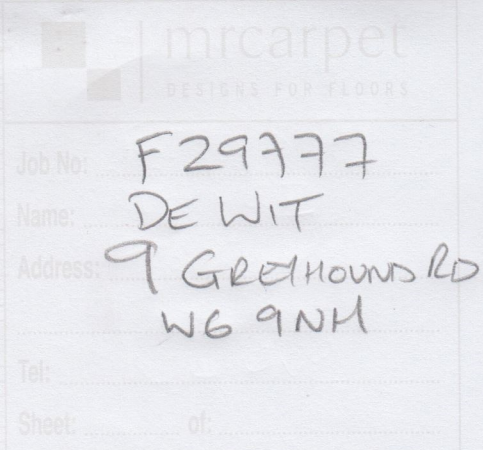 mrcarpet
DESIGNS FOR FLOORS
Job No: F29777
Name: DE WIT
Address: 9 GREYHOUND RD
W6 9NH
Tel:
Sheet: of: